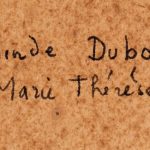 inde Dubo
Marie Thérése